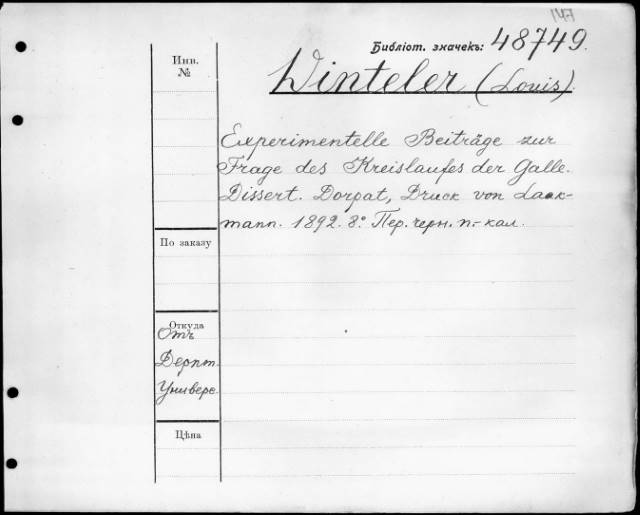 147
Библіот. значекъ: 48749.
Инв.
№
Winteler (Louis).
Experimentelle Beiträge zur
Frage des Kreislaufes der Galle.
Dissert. Dorpat, Druck von Laak-
mann. 1892. 8º. Пер. черн. п.-кал.
По заказу
Откуда
Отъ
Дерпт.
Универс.
Цѣна